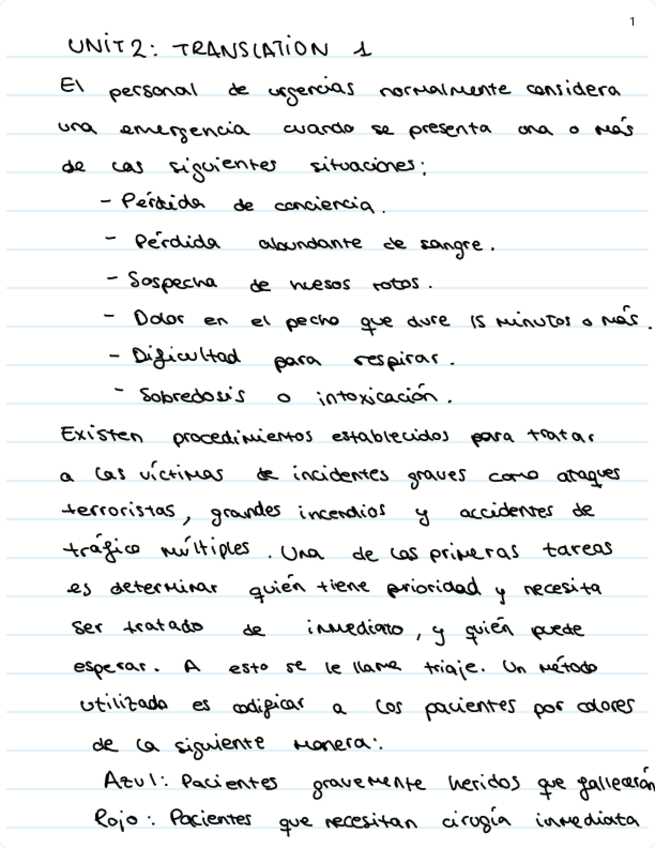 1
UNIT 2: TRANSLATION 1
El personal de urgencias normalmente considera
una emergencia cuando se presenta una o más
de las siguientes situaciones:
- Pérdida de conciencia.
- Pérdida abundante de sangre.
- Sospecha de huesos rotos.
- Dolor en el pecho que dure 15 minutos o más.
- Dificultad para respirar.
- Sobredosis o intoxicación.
Existen procedimientos establecidos para tratar
a las víctimas de incidentes graves como ataques
terroristas, grandes incendios y accidentes de
tráfico múltiples. Una de las primeras tareas
es determinar quién tiene prioridad y necesita
ser tratado de inmediato, y quién puede
esperar. A esto se le llama triaje. Un método
utilizado es codificar a los pacientes por colores
de la siguiente manera:
Azul: Pacientes gravemente heridos que fallecerán
Rojo: Pacientes que necesitan cirugía inmediata